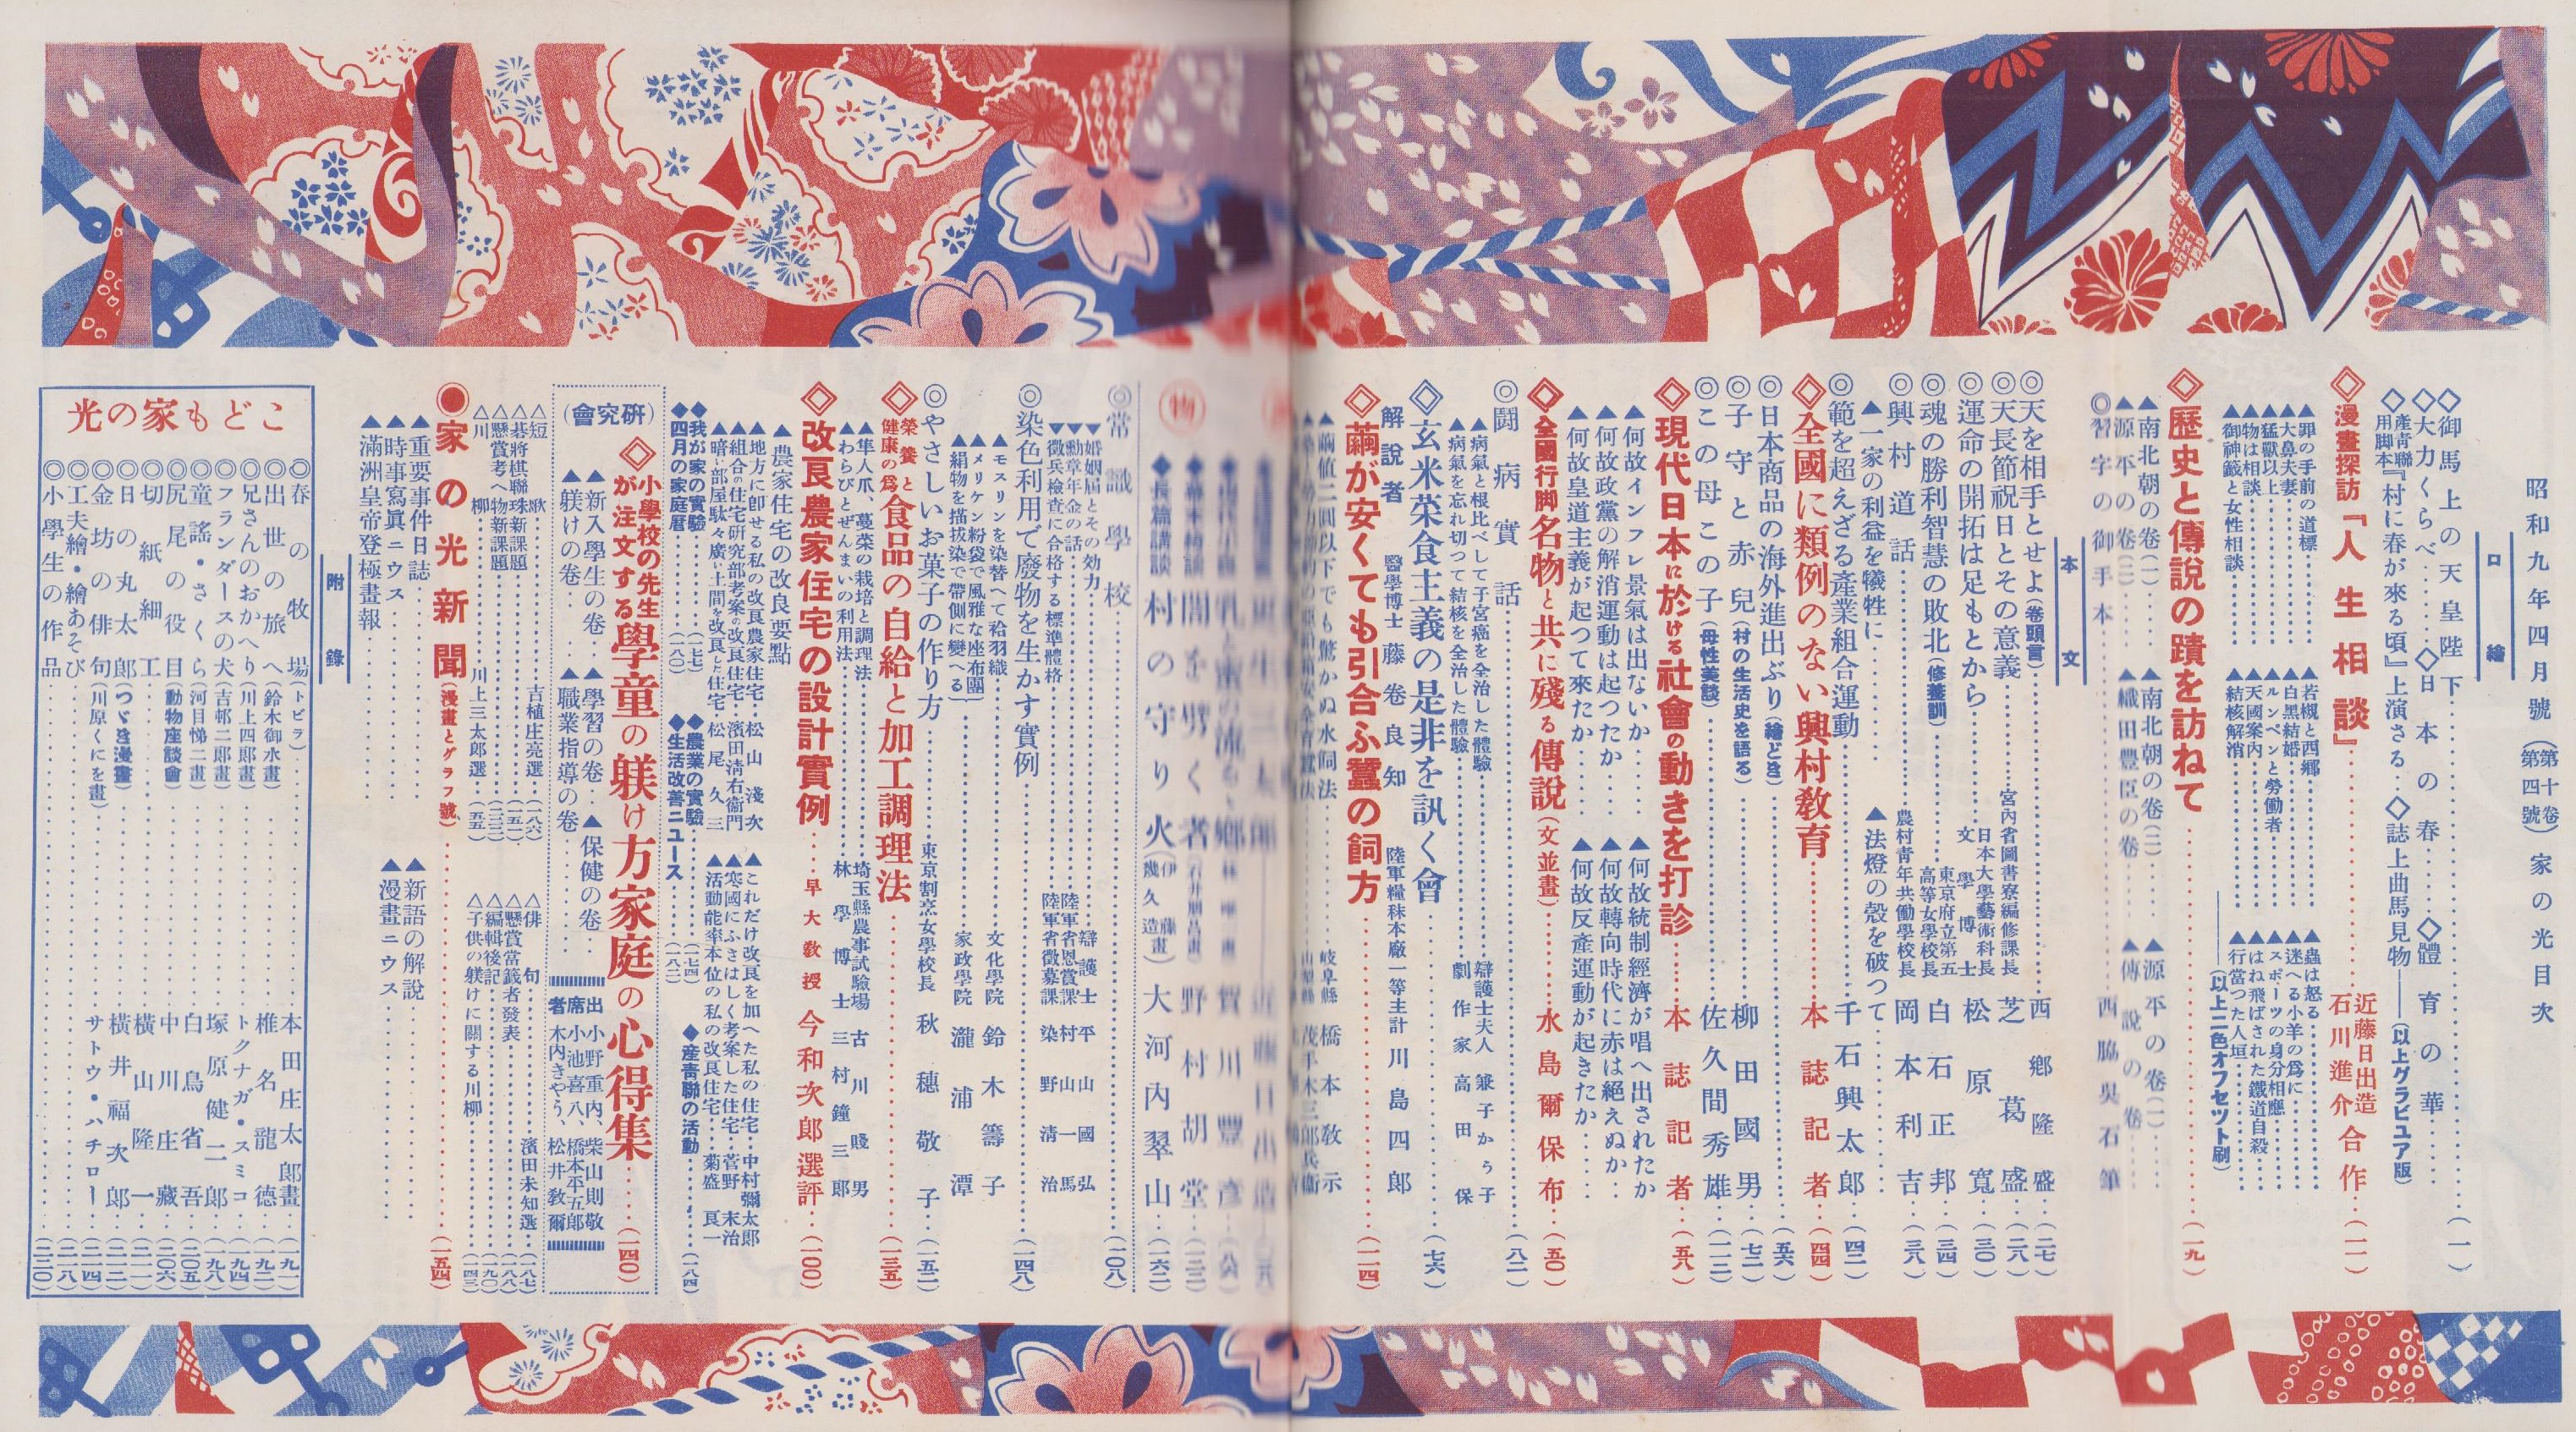 昭和九年四月號（第十卷第四號）家の光目次
口繪
◇御馬上の天皇陛下……（一）
◇大力くらべ……◇日本の春……◇體育の華……
◇產青聯用脚本『村に春が來る頃』上演さる…◇誌上曲馬見物――（以上グラビユア版）
◇漫畫探訪「人生相談」……近藤日出造 石川進介 合作…（一一）
▲罪の手前の道標……▲若槻と西郷……▲蟲は怒る……
▲大鼻夫妻……▲白黑結婚……▲迷へる小羊の爲に……
▲猛獸以上……▲ルンペンと勞働者……▲スポーツの身分相應……
▲物は相談……▲天國案內……▲はね飛ばされた鐵道自殺……
▲御神籤と女性相談……▲結核解消……▲行當つた人垣……
――（以上二色オフセツト刷）
◇歷史と傳說の蹟を訪ねて……（一九）
▲南北朝の卷（一）……▲南北朝の卷（二）……▲源平の卷（一）……
▲源平の卷（二）……▲織田豐臣の卷……▲傳說の卷……
◎習字の御手本……西脇吳石筆
本文
◎天を相手とせよ（卷頭言）……西鄕隆盛…（二七）
◎天長節祝日とその意義……宮內省圖書寮編修課長 芝葛盛…（二八）
◎運命の開拓は足もとから……日本大學藝術科長 文學博士 松原寬…（三〇）
◎魂の勝利智慧の敗北（修養訓）……東京府立第五高等女學校長 白石正邦…（三四）
◎興村道話……農村靑年共働學校長 岡本利吉…（三八）
▲一家の利益を犧牲に……▲法燈の殼を破つて……
◎範を超えざる產業組合運動……千石興太郎…（四二）
◇全國に類例のない興村敎育……本誌記者…（四四）
◎日本商品の海外進出ぶり（繪どき）……（五六）
◎子守と赤兒（村の生活史を語る）……柳田國男…（七二）
◎この母この子（母性美談）……佐久間秀雄…（一一二）
◇現代日本に於ける社會の動きを打診……本誌記者…（五八）
▲何故インフレ景氣は出ないか……▲何故統制經濟が唱へ出されたか
▲何故政黨の解消運動は起つたか……▲何故轉向時代に赤は絕えぬか…
▲何故皇道主義が起つて來たか……▲何故反產運動が起きたか……
◇全國行脚名物と共に殘る傳說（文並畫）……水島爾保布…（五〇）
◎鬪病實話……（八二）
▲病氣と根比べして子宮癌を全治した體驗……辯護士夫人 兼子かう子
▲病氣を忘れ切つて結核を全治した體驗……劇作家 高田保
◇玄米菜食主義の是非を訊く會……（七六）
解說者 醫學博士 藤卷良知 陸軍糧秣本廠一等主計 川島四郎
◇繭が安くても引合ふ蠶の飼方……（一二四）
▲繭値二圓以下でも驚かぬ水飼法……岐阜縣 橋本敎示
物
◆長篇講談 村の守り火（伊藤幾久造畫）大河內翠山…（一六二）
◎常識學校……（一〇八）
▼婚姻屆とその効力……辯護士 平山國弘
▼勳章年金の話……陸軍省恩賞課 村山一馬
▼徵兵檢査に合格する標準體格……陸軍省徵募課 染野淸治
◎染色利用で廢物を生かす實例……（一四八）
▲モスリンを染替へて袷羽織……文化學院 鈴木籌子
▲メリケン粉袋で風雅な座布團
▲絹物を描拔染で帶側に變へる……家政學院 瀧浦潭
◎やさしいお菓子の作り方……東京割烹女學校長 秋穗敬子…（一五二）
◇榮養と健康の爲食品の自給と加工調理法……（一三五）
▲隼人爪、蔓菜の栽培と調理法……埼玉縣農事試驗場 古川賤男
▲わらびとぜんまいの利用法……林學博士 三村鐘三郎
◇改良農家住宅の設計實例……早大敎授 今和次郎選評…（一〇〇）
▲農家住宅の改良要點
▲地方に卽せる私の改良農家住宅…松山淺次 ▲これだけ改良を加へた私の住宅…中村彌太郎
▲組合の住宅硏究部考案の改良住宅…濱田淸右衞門 ▲寒國にふさはしく考案した住宅…菅野末治
▲暗い部屋駄々廣い土間を改良した住宅…松尾久三 ▲活動能率本位の私の改良住宅…菊盛良一
◆我が家の實驗……（一七七）◆農業の實驗……（一七四）◆產靑聯の活動……（一八四）
◆四月の家庭曆……（一八〇）◆生活改善ニユース……（一八二）
（硏究會）◇小學校の先生が注文する學童の躾け方家庭の心得集……（一四〇）
▲新入學生の卷…▲學習の卷…▲保健の卷…
▲躾けの卷……▲職業指導の卷……
出席者 小野重內、柴山則敬 小池喜八、橋本平五郎 木內きやう、松井敎爾
△短歌……吉植庄亮選…（一八六）△俳句……濱田未知選…（一八七）
△碁將棋聯珠新課題……（一五一）△懸賞當籤者發表……（一八八）
△懸賞考へ物新課題……（一三三）△編輯後記……（一九〇）
△川柳……川上三太郎選…（一五五）△子供の躾けに關する川柳……（一四三）
●家の光新聞（漫畫とグラフ號）……（一五四）
▲重要事件日誌……▲新語の解說……
▲時事寫眞ニウス……▲漫畫ニウス……
▲滿洲皇帝登極畫報……
附錄
こども家の光
◎春の牧場（トビラ）……本田庄太郎畫…（一九一）
◎出世の旅へ（鈴木御水畫）……椎名龍德…（一九二）
◎兄さんのおかへり（川上四郎畫）……トクナガ・スミコ…（一九四）
◎フランダースの犬（吉邨二郎畫）……塚原健二郎…（一九八）
◎童謠・さくら（河目悌二畫）……白鳥省吾…（二〇五）
◎尻尾の役目（動物座談會）……中川庄藏…（二〇六）
◎切紙細工……橫山隆一…（二一一）
◎日の丸太郎（つゞき漫畫）……橫井福次郎…（二一二）
◎金坊の俳句（川原くにを畫）……サトウ・ハチロー…（二一四）
◎工夫繪・繪あそび……（二一八）
◎小學生の作品……（二二〇）